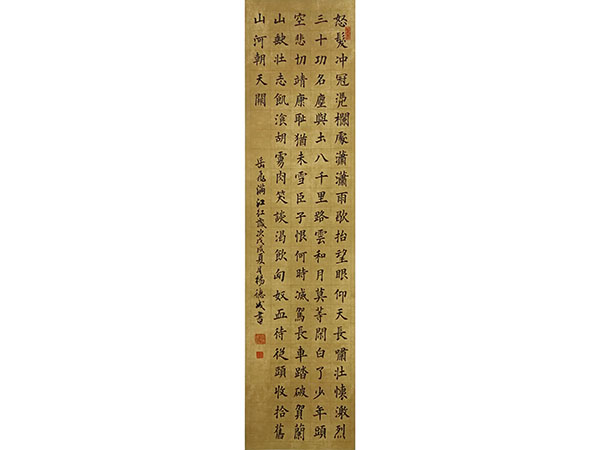 怒髮冲冠凴欄處瀟瀟雨歇抬望眼仰天長嘯壯懷激烈
三十功名塵與土八千里路雲和月莫等閒白了少年頭
空悲切靖康耻猶未雪臣子恨何時滅駕長車踏破賀蘭
山缺壯志飢湌胡虜肉笑談渴飲匈奴血待從頭收拾舊
山河朝天闕
岳飛滿江紅歲次戊戌夏月楊德成書